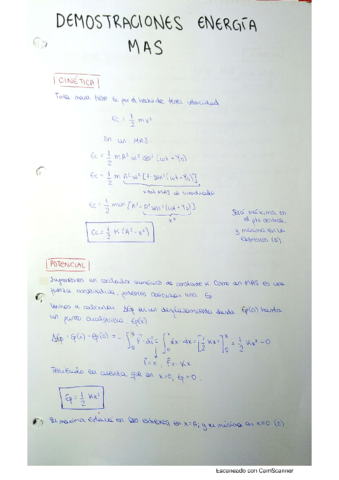 DEMOSTRACIONES ENERGÍA
MAS
CINÉTICA
Toda masa tiene Ec por el hecho de tener velocidad
Ec = 1/2 mv²
En un MAS
Ec = 1/2 m A² ω² cos² (ωt + φ₀)
Ec = 1/2 m A² ω² [1 - sen² (ωt + φ₀)]
Ec = 1/2 mω² [A² - A² sen² (ωt + φ₀)]
x²
Ec = 1/2 K (A² - x²)
Será máxima en
el pto central
y mínima en los
extremos (0).
POTENCIAL
Supongamos un oscilador armónico de constante K. Como un MAS es una
fuerza conservativa, podemos asociarle una Ep
Vamos a calcular ΔEp en un desplazamiento desde Ep(0) hasta
un punto cualquiera Ep(x)
Teniendo en cuenta que en x=0, Ep=0.
Ep = 1/2 Kx²
Su máxima estará en los extremos, en x=A, y su mínima en x=0 (0)
Escaneado con CamScanner